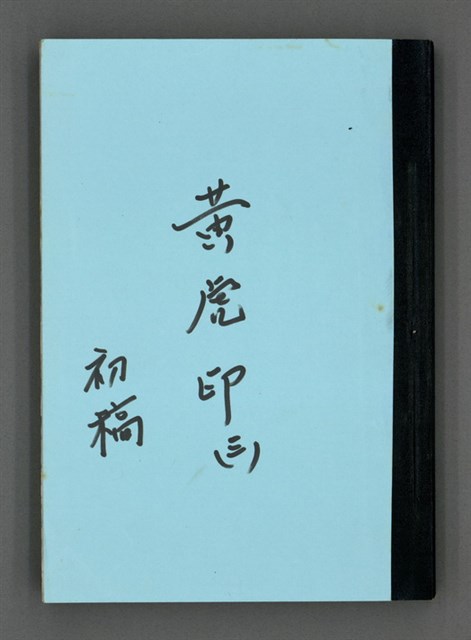 黃虎印(三)
初稿